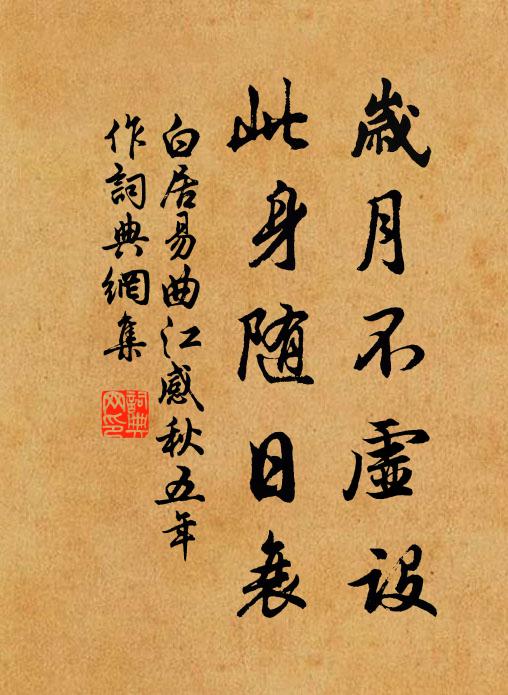 歲月不虛設
此身隨日衰
白居易曲江感秋五年
作詞典網集
詞典
网印